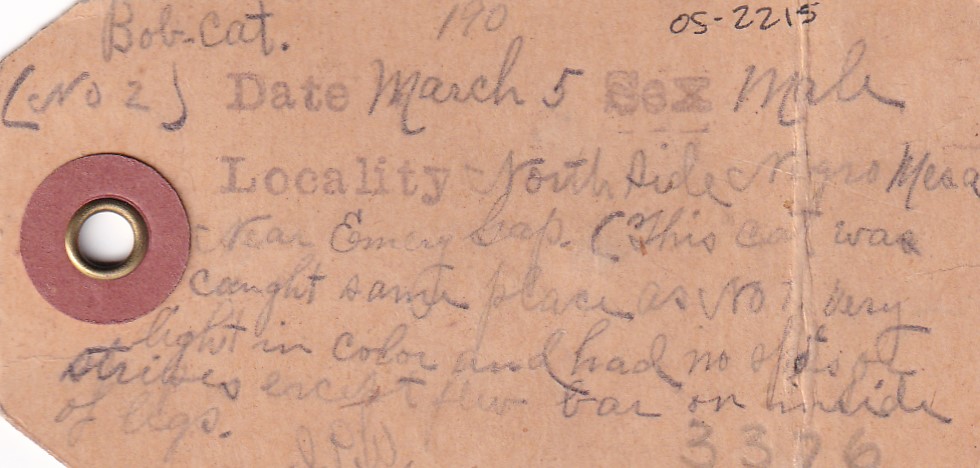 Bob-cat. 190 05-2215
(No 2) Date March 5 Sex Male
Locality North side Negro Mesa
Near Emery Gap. (This cat was
caught same place as No 1. Very
light in color and had no spots or
stripes except few bar on inside
of legs.
3326